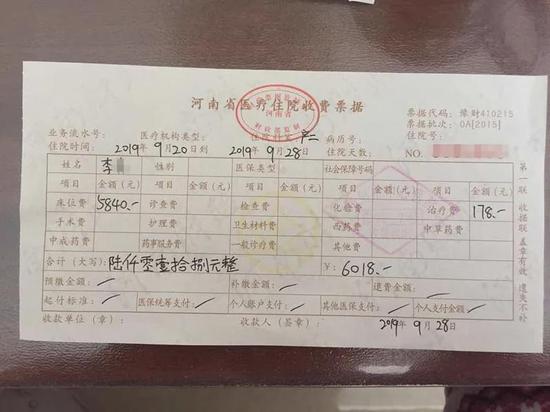 河南省医疗住院收费票据
票据代码：豫财410215
票据批次：0A[2015]
业务流水号： 医疗机构类型： 病历号： 住院号：
住院时间：2019年9月20日到 2019年9月28日 住院天数： NO.
姓名 李 性别 医保类型 社会保障号码
项目 金额(元) 项目 金额(元) 项目 金额(元) 项目 金额(元) 项目 金额(元)
床位费 5840.- 诊查费 检查费 化验费 治疗费 178.-
手术费 护理费 卫生材料费 西药费 中草药费
中成药费 药事服务费 一般诊疗费 其他费
合计(大写)：陆仟零壹拾捌元整 ¥：6018.-
预缴金额： 补缴金额： 退费金额：
起付标准： 医保统筹支付： 个人账户支付： 其他医保支付： 个人支付金额：
收款单位(章)： 收款人(签章)： 2019年9月28日
第一联 收据联 盖章有效 遗失不补